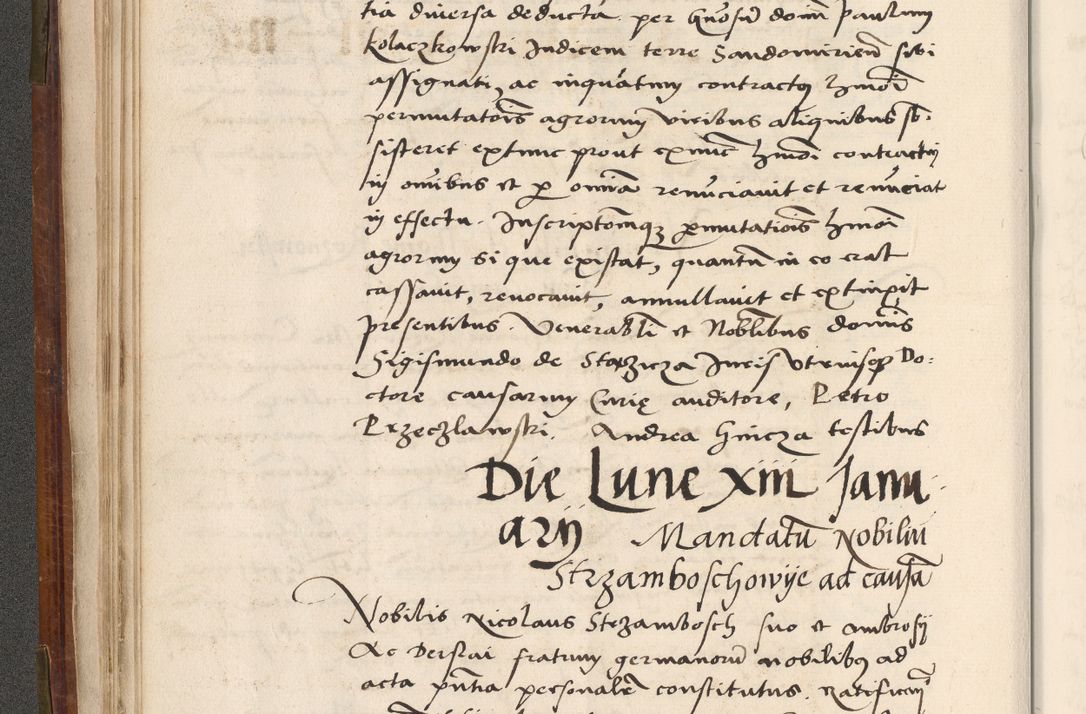 tia diversa deducta per Gnosum dom Paulum
Kolaczkowski Iudicem terre Sandomirien sibi
assignati, ac inquatum contractus hmoi
permutatois agrorum viribus aliquibus sb:
sisteret extunc prout exnunc hmoi contractui
in omibus et per omia renunciavit et renunciat
in effectu. Inscriptomque permutatiois hmoi
agrorum si que existat, quantum in eo erat
cassavit, revocavit, annullavit et extinxit
presentibus. Venerabli et Noblibus domis
Sigismundo de Stezicza Iuris utriusque Do:
ctore causarum Curie auditore, Petro
Przeczlawski. Andrea Hincza testibus
Die Lune xiii Janu
arij Mandatum Nobilium
Strzamboschowye ad causam
Nobilis Nicolaus Strzambosch suo et Ambrosij
Ac Derslai fratrum germanorum nobilibus ad
acta pntia personalem constitutus. Ratificans